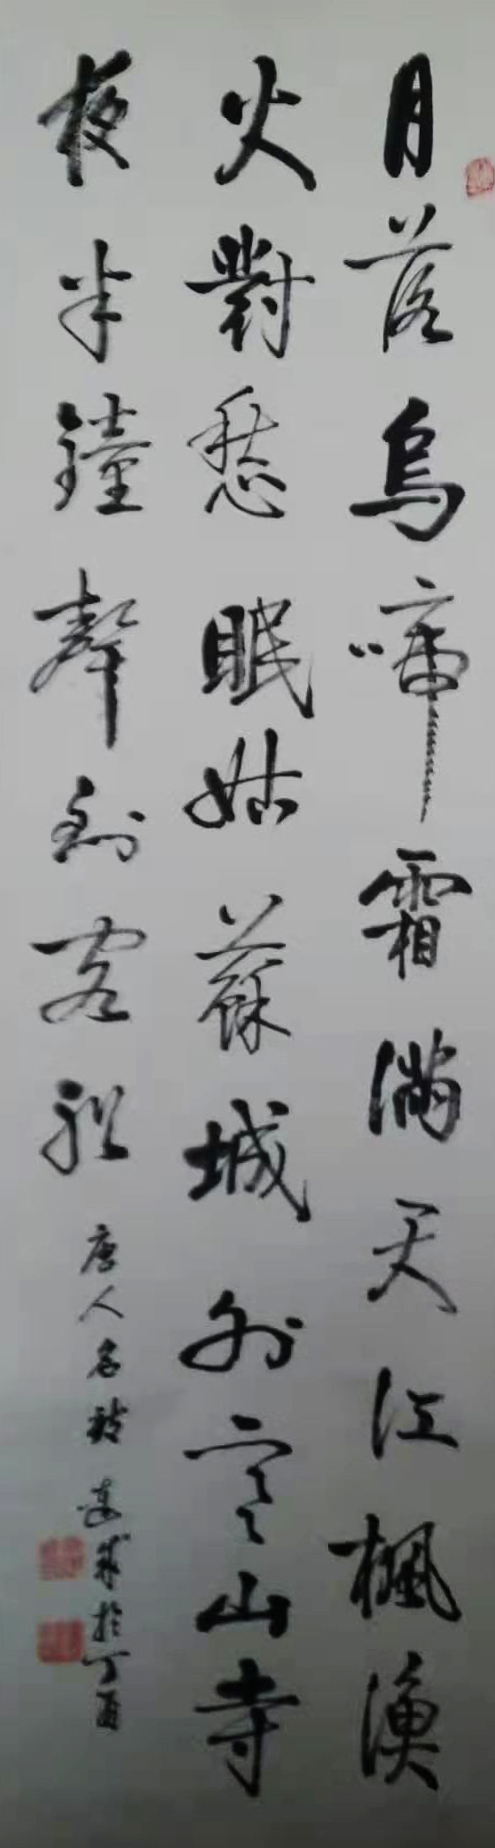 月落烏啼霜滿天江楓漁
火對愁眠姑蘇城外寒山寺
夜半鐘聲到客船
唐人名詩 於丁酉